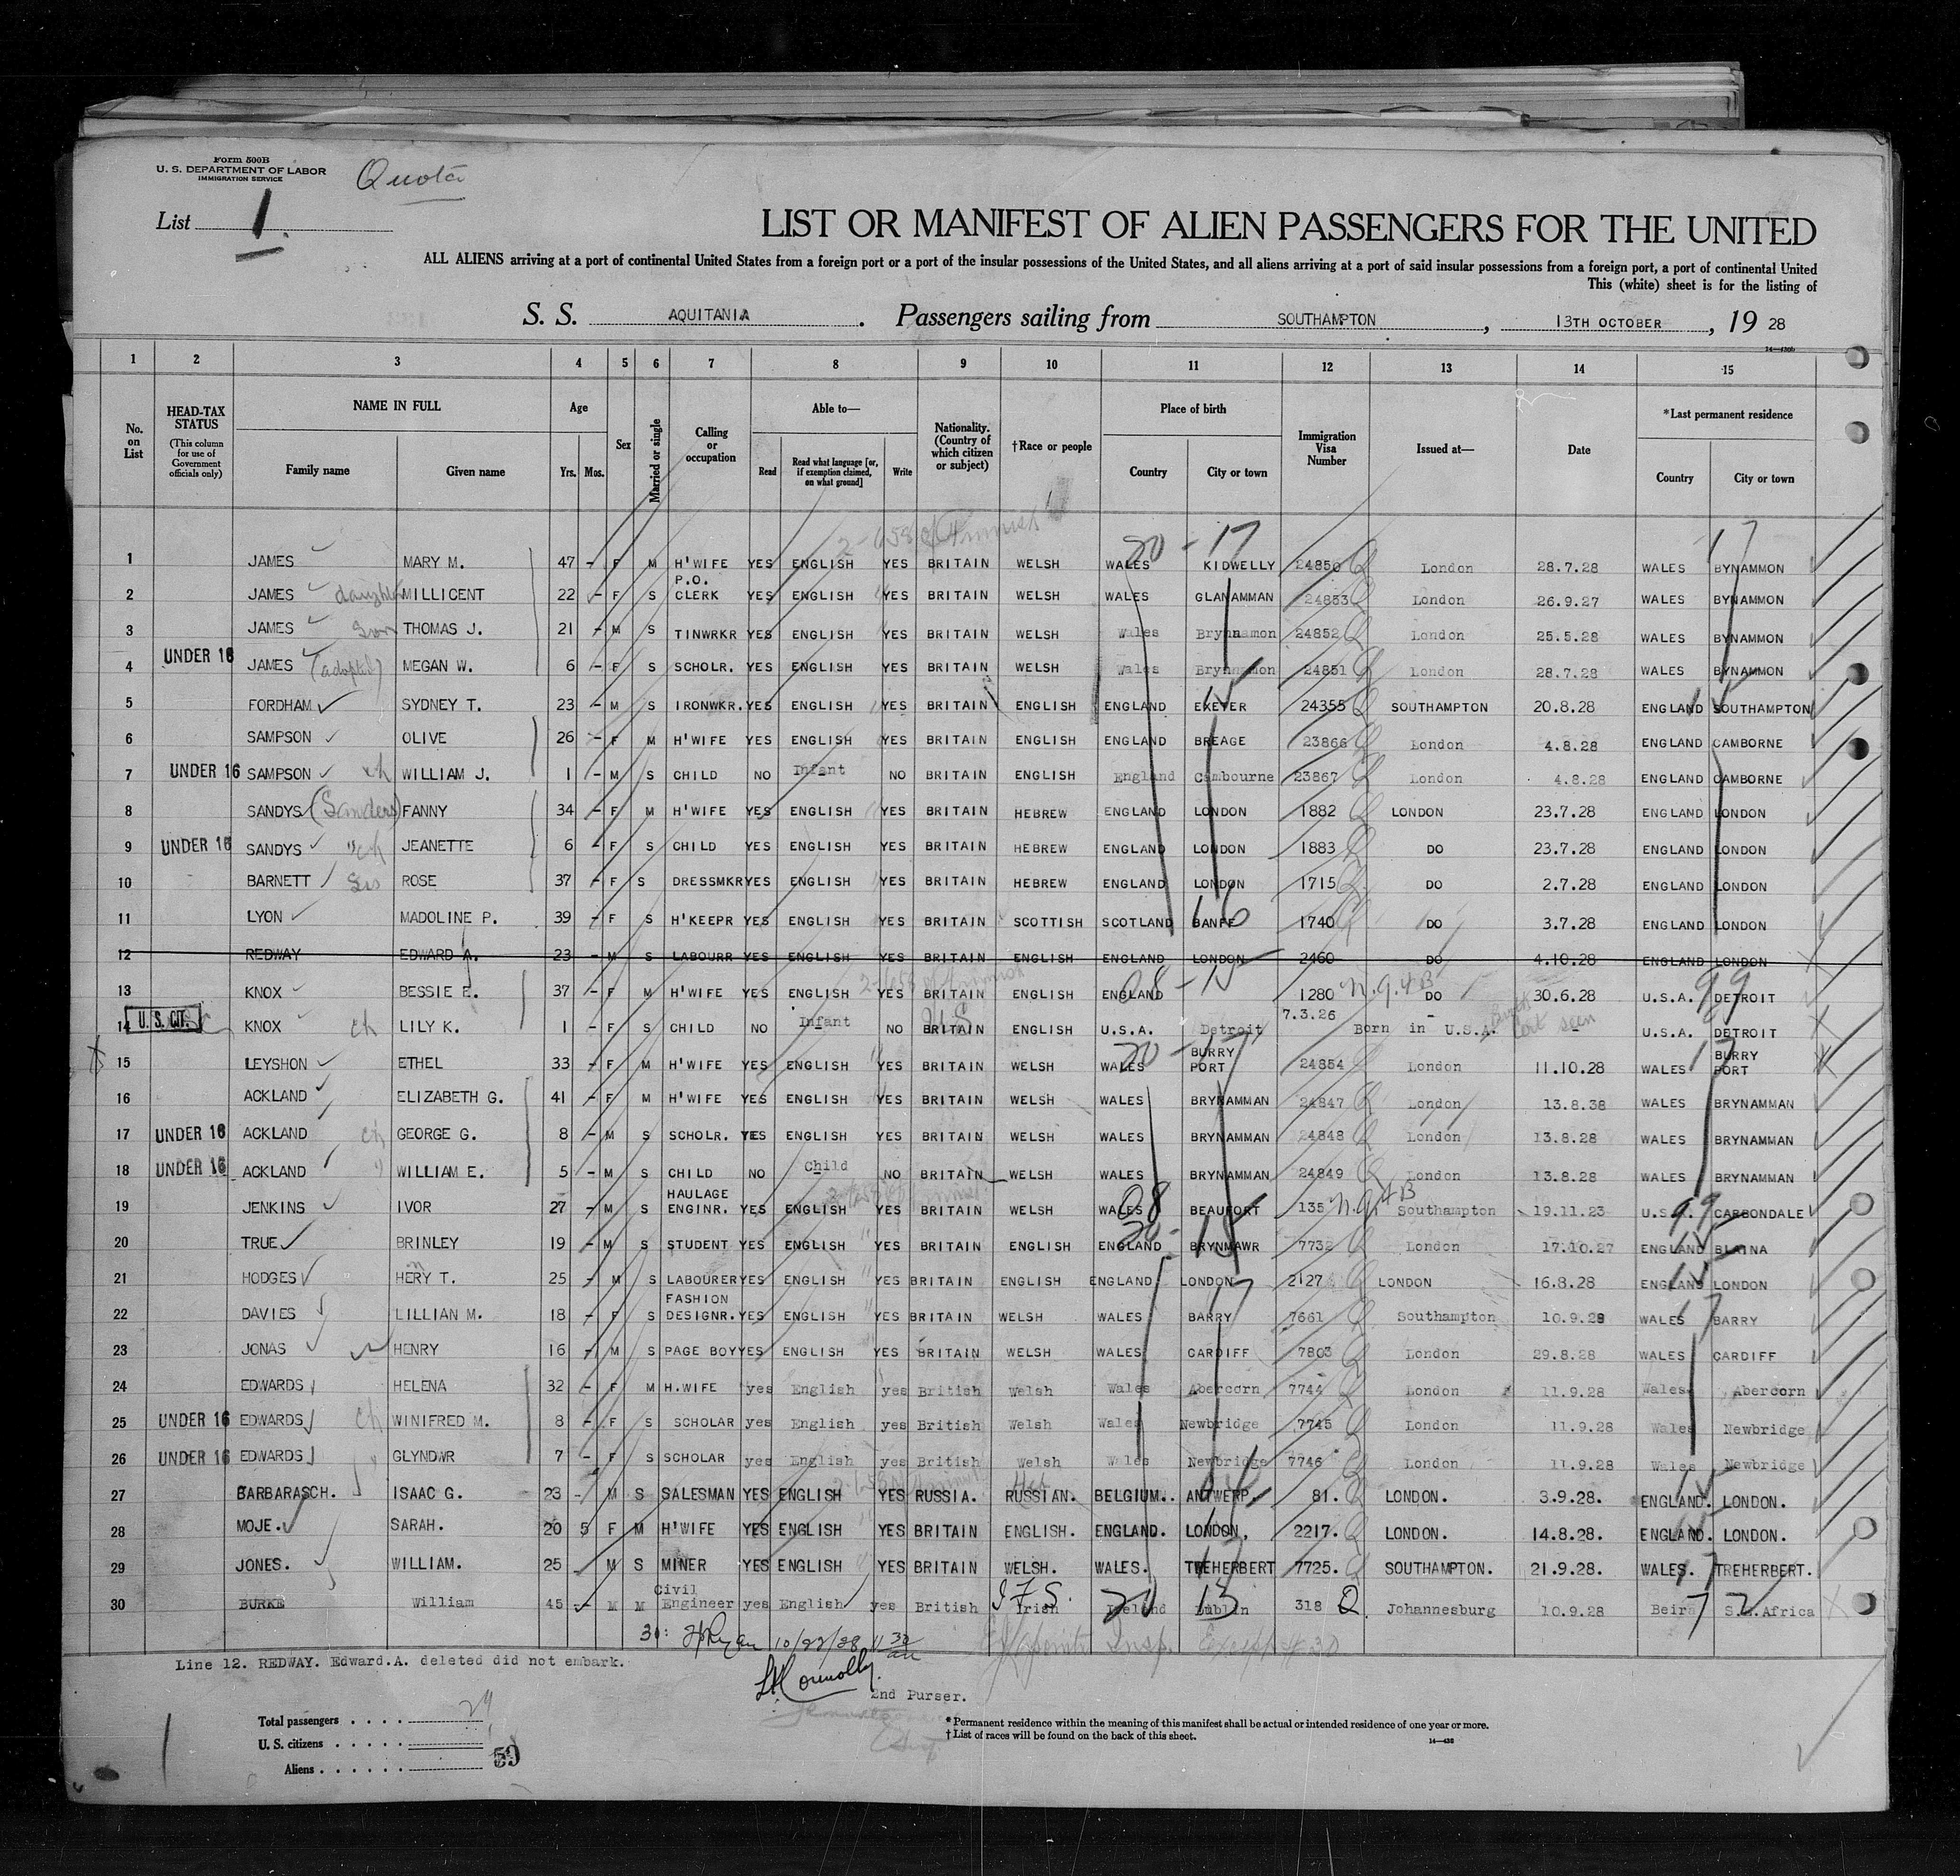 Form 500B
U. S. DEPARTMENT OF LABOR
IMMIGRATION SERVICE
Quota
List 1.
LIST OR MANIFEST OF ALIEN PASSENGERS FOR THE UNITED
ALL ALIENS arriving at a port of continental United States from a foreign port or a port of the insular possessions of the United States, and all aliens arriving at a port of said insular possessions from a foreign port, a port of continental United
This (white) sheet is for the listing of
S. S. AQUITANIA. Passengers sailing from SOUTHAMPTON, 13TH OCTOBER, 19 28
1 2 3 4 5 6 7 8 9 10 11 12 13 14 15
No. on List
HEAD-TAX STATUS (This column for use of Government officials only)
NAME IN FULL Family name Given name
Age Yrs. Mos.
Sex
Married or single
Calling or occupation
Able to— Read Read what language [or, if exemption claimed, on what ground] Write
Nationality. (Country of which citizen or subject)
†Race or people
Place of birth Country City or town
Immigration Visa Number
Issued at—
Date
*Last permanent residence Country City or town
20 - 17 17
1 JAMES MARY M. 47 - F M H'WIFE YES ENGLISH YES BRITAIN WELSH WALES KIDWELLY 24850 Q London 28.7.28 WALES BYNAMMON
2 JAMES daughter MILLICENT 22 - F S P.O. CLERK YES ENGLISH YES BRITAIN WELSH WALES GLANAMMAN 24853 Q London 26.9.27 WALES BYNAMMON
3 JAMES Son THOMAS J. 21 - M S TINWRKR YES ENGLISH YES BRITAIN WELSH Wales Brynnamon 24852 Q London 25.5.28 WALES BYNAMMON
4 UNDER 16 JAMES (adopted) MEGAN W. 6 - F S SCHOLR. YES ENGLISH YES BRITAIN WELSH Wales Brynnamon 24851 Q London 28.7.28 WALES BYNAMMON
5 FORDHAM SYDNEY T. 23 - M S IRONWKR. YES ENGLISH YES BRITAIN ENGLISH ENGLAND EXETER 24355 Q SOUTHAMPTON 20.8.28 ENGLAND SOUTHAMPTON
6 SAMPSON OLIVE 26 - F M H'WIFE YES ENGLISH YES BRITAIN ENGLISH ENGLAND BREAGE 23866 Q London 4.8.28 ENGLAND CAMBORNE
7 UNDER 16 SAMPSON ch WILLIAM J. 1 - M S CHILD NO Infant NO BRITAIN ENGLISH England Cambourne 23867 Q London 4.8.28 ENGLAND CAMBORNE
8 SANDYS (Sanders) FANNY 34 - F M H'WIFE YES ENGLISH YES BRITAIN HEBREW ENGLAND LONDON 1882 Q LONDON 23.7.28 ENGLAND LONDON
9 UNDER 16 SANDYS "ch JEANETTE 6 - F S CHILD YES ENGLISH YES BRITAIN HEBREW ENGLAND LONDON 1883 Q DO 23.7.28 ENGLAND LONDON
10 BARNETT Sis ROSE 37 - F S DRESSMKR YES ENGLISH YES BRITAIN HEBREW ENGLAND LONDON 1715 Q DO 2.7.28 ENGLAND LONDON
11 LYON MADOLINE P. 39 - F S H'KEEPR YES ENGLISH YES BRITAIN SCOTTISH SCOTLAND BANFF 16 1740 Q DO 3.7.28 ENGLAND LONDON
12 REDWAY EDWARD A. 23 - M S LABOURR YES ENGLISH YES BRITAIN ENGLISH ENGLAND LONDON 2460 DO 4.10.28 ENGLAND LONDON
13 KNOX BESSIE E. 37 - F M H'WIFE YES ENGLISH YES BRITAIN ENGLISH ENGLAND 08 - 15 1280 N.Q.4B DO 30.6.28 U.S.A. 99 DETROIT
14 U.S. CIT. KNOX ch LILY K. 1 - F S CHILD NO Infant NO BRITAIN U.S. ENGLISH U.S.A. Detroit 7.3.26 - Born in U.S.A. - Birth Cert seen U.S.A. DETROIT
15 LEYSHON ETHEL 33 - F M H'WIFE YES ENGLISH YES BRITAIN WELSH WALES 20 - 17 BURRY PORT 24854 London 11.10.28 WALES 17 BURRY PORT
16 ACKLAND ELIZABETH G. 41 - F M H'WIFE YES ENGLISH YES BRITAIN WELSH WALES BRYNAMMAN 24847 Q London 13.8.38 WALES BRYNAMMAN
17 UNDER 16 ACKLAND ch GEORGE G. 8 - M S SCHOLR. YES ENGLISH YES BRITAIN WELSH WALES BRYNAMMAN 24848 Q London 13.8.28 WALES BRYNAMMAN
18 UNDER 16 ACKLAND " WILLIAM E. 5 - M S CHILD NO Child NO BRITAIN WELSH WALES BRYNAMMAN 24849 Q London 13.8.28 WALES BRYNAMMAN
19 JENKINS IVOR 27 - M S HAULAGE ENGINR. YES ENGLISH YES BRITAIN WELSH WALES 08 BEAUFORT 135 N.Q.4B Southampton 19.11.23 U.S.A. 99 CARBONDALE
20 TRUE BRINLEY 19 - M S STUDENT YES ENGLISH YES BRITAIN ENGLISH ENGLAND 20 - 15 BRYNMAWR 7732 Q London 17.10.27 ENGLAND 15 BLAINA
21 HODGES HERY T. 25 - M S LABOURER YES ENGLISH YES BRITAIN ENGLISH ENGLAND LONDON 2127 Q LONDON 16.8.28 ENGLAND 15 LONDON
22 DAVIES LILLIAN M. 18 - F S FASHION DESIGNR. YES ENGLISH YES BRITAIN WELSH WALES BARRY 17 7661 Q Southampton 10.9.28 WALES 17 BARRY
23 JONAS HENRY 16 - M S PAGE BOY YES ENGLISH YES BRITAIN WELSH WALES CARDIFF 7803 Q London 29.8.28 WALES CARDIFF
24 EDWARDS HELENA 32 - F M H.WIFE yes English yes British Welsh Wales Abercorn 7744 Q London 11.9.28 Wales Abercorn
25 UNDER 16 EDWARDS ch WINIFRED M. 8 - F S SCHOLAR yes English yes British Welsh Wales Newbridge 7745 Q London 11.9.28 Wales Newbridge
26 UNDER 16 EDWARDS " GLYNDWR 7 - F S SCHOLAR yes English yes British Welsh Wales Newbridge 7746 Q London 11.9.28 Wales Newbridge
27 BARBARASCH. ISAAC G. 23 - M S SALESMAN YES ENGLISH YES RUSSIA. RUSSIAN. Heb BELGIUM. ANTWERP. 81. Q LONDON. 3.9.28. ENGLAND. 15 LONDON.
28 MOJE. SARAH. 20 5 F M H'WIFE YES ENGLISH YES BRITAIN ENGLISH. ENGLAND. LONDON, 2217. Q LONDON. 14.8.28. ENGLAND. LONDON.
29 JONES. WILLIAM. 25 M S MINER YES ENGLISH YES BRITAIN WELSH. WALES. TREHERBERT 17 7725. Q SOUTHAMPTON. 21.9.28. WALES. 17 TREHERBERT.
30 BURKE William 45 - M M Civil Engineer yes English yes British Irish I.F.S. Ireland 20 Dublin 13 318 Q. Johannesburg 10.9.28 Beira 72 S.E.Africa
10/22/28 11 30 am
Insp.
Line 12. REDWAY. Edward.A. deleted did not embark.
Connolly.
2nd Purser.
Total passengers . . . . 29
U. S. citizens . . . . .
Aliens . . . . . .
59
*Permanent residence within the meaning of this manifest shall be actual or intended residence of one year or more.
†List of races will be found on the back of this sheet.
14—430